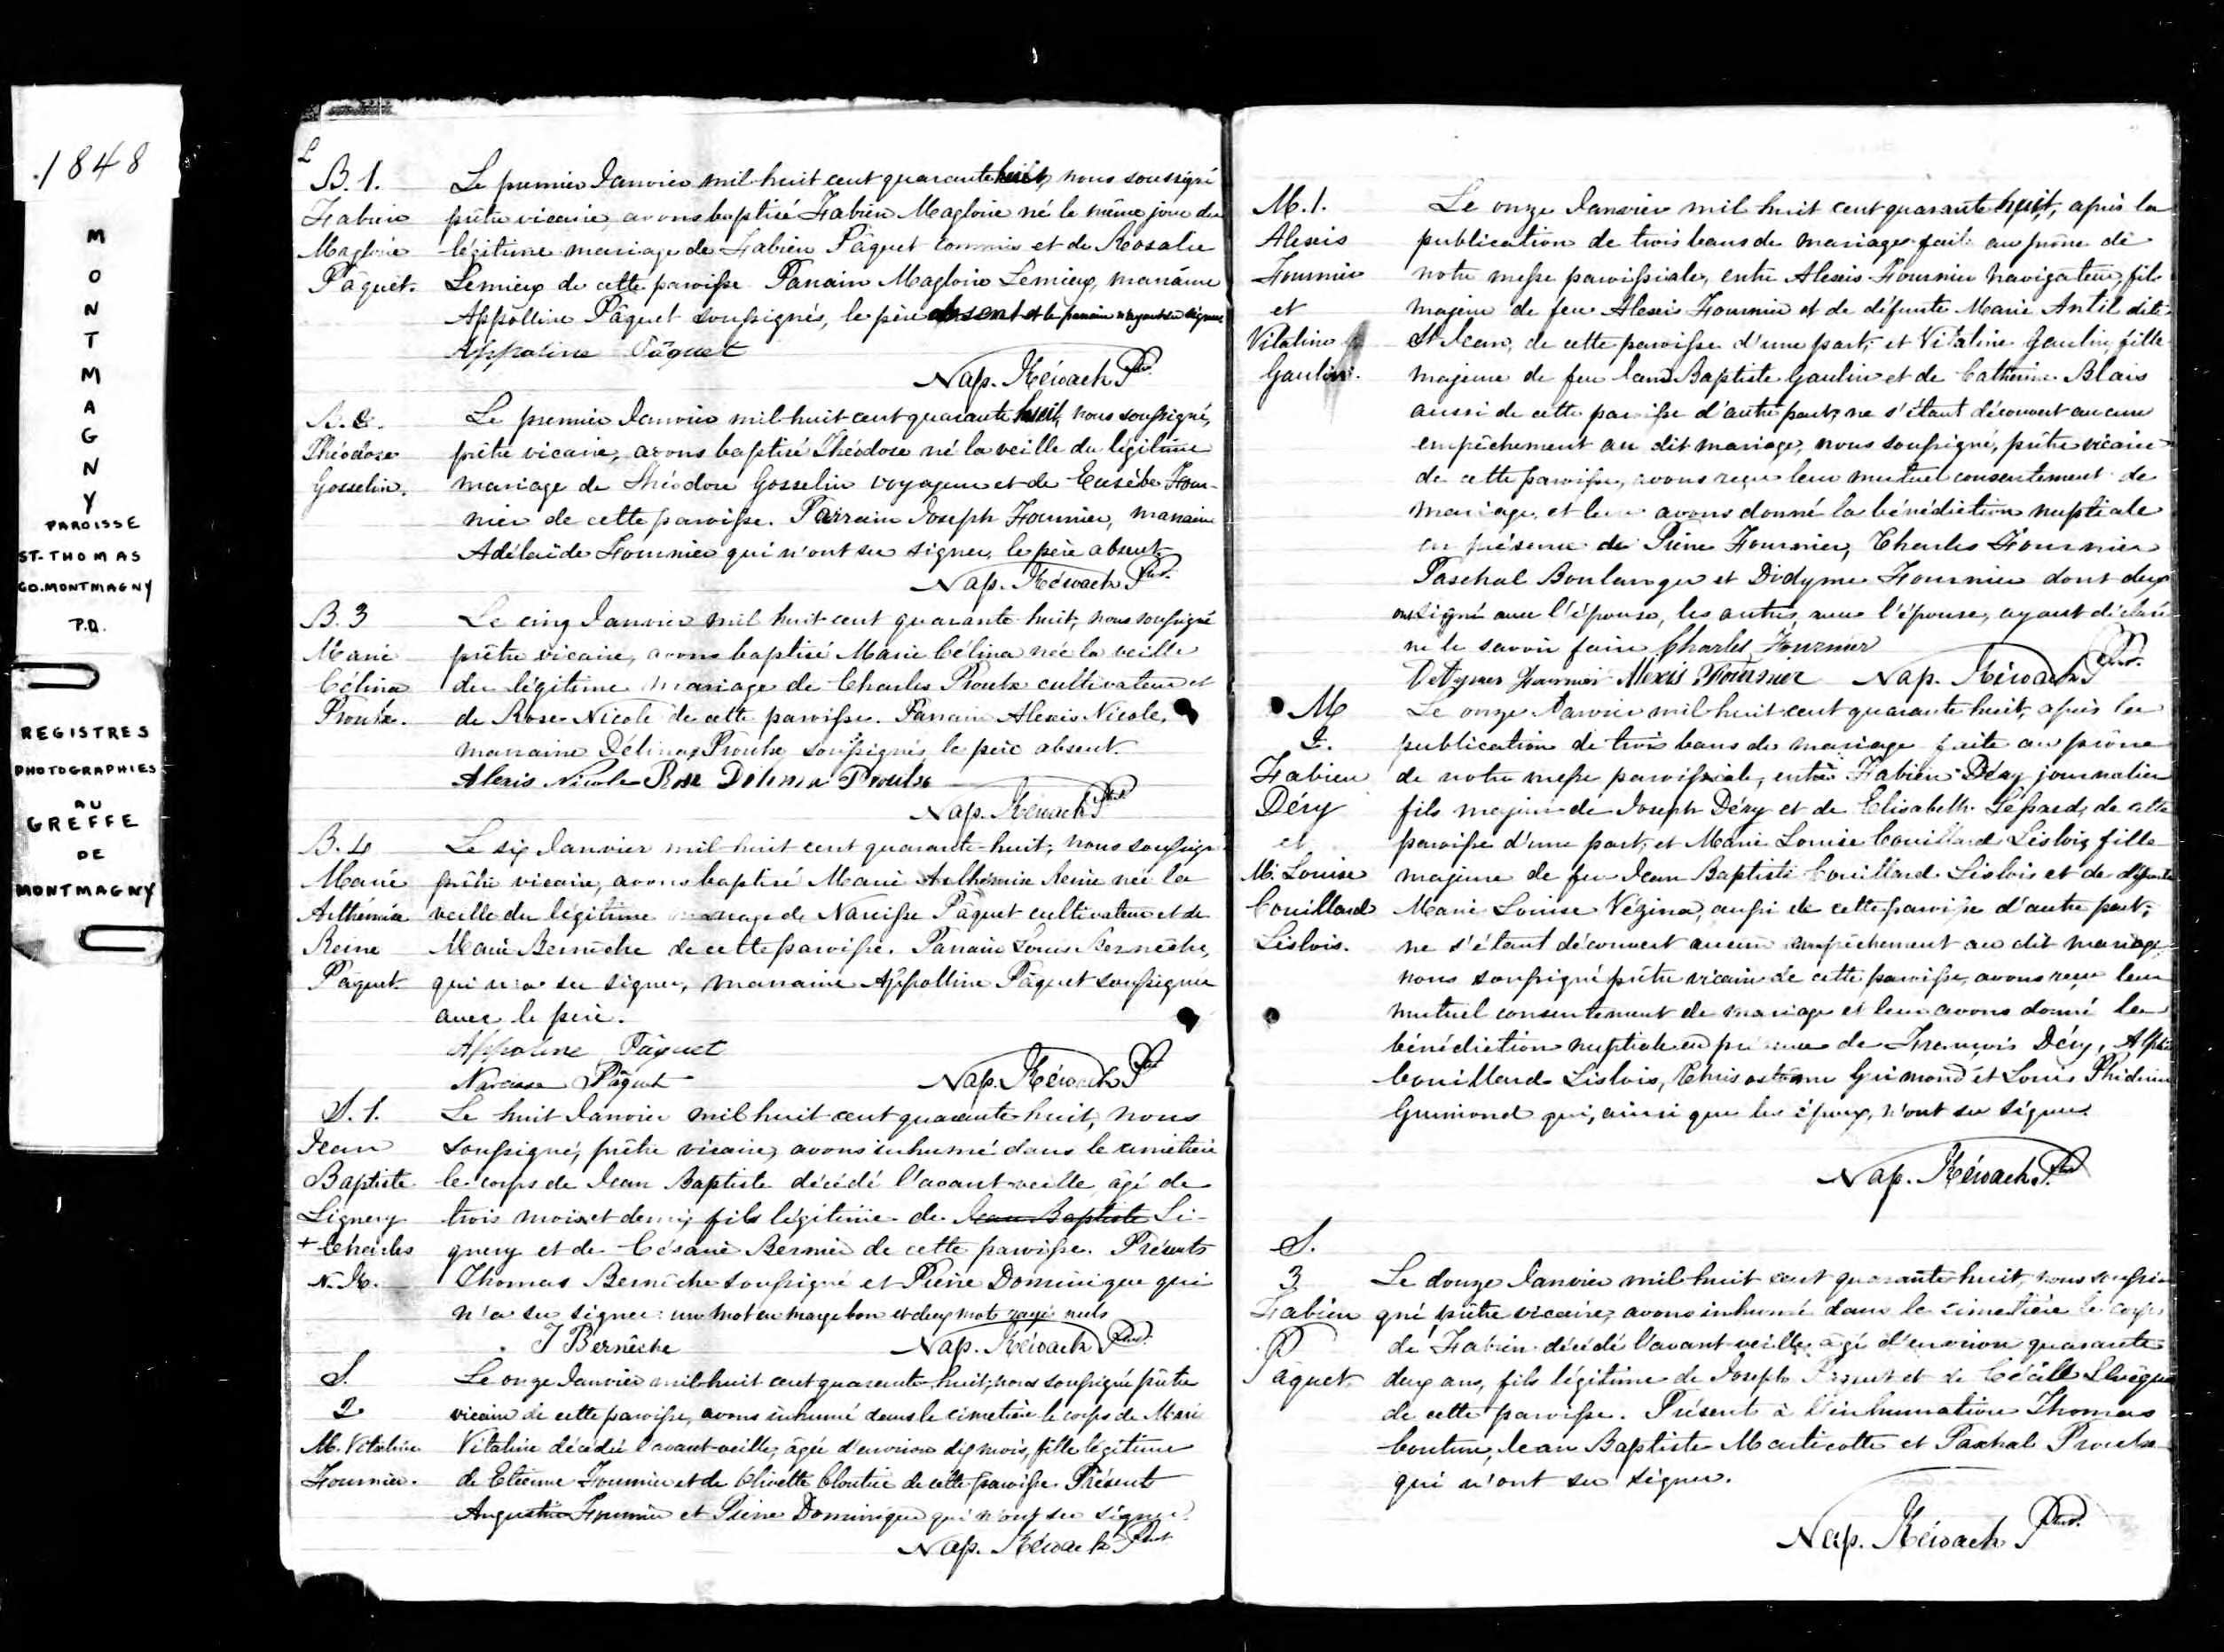 1848
MONTMAGNY
PAROISSE
ST. THOMAS
CO. MONTMAGNY
P.Q.
REGISTRES
PHOTOGRAPHIES
AU
GREFFE
DE
MONTMAGNY
B. 1.
Fabien
Magloire
Pâquet.
Le premier Janvier mil-huit cent quarante huit, nous soussigné
prêtre vicaire, avons baptisé Fabien Magloire né le même jour du
légitime mariage de Fabien Pâquet commis et de Rosalie
Lemieux de cette paroisse Parrain Magloire Lemieux, marraine
Appolline Pâquet soussignés, le père absent et le parrain n'ayant su signer
Appoline Pâquet
Nap. Kéroach Ptre.
B. 2.
Théodore
Gosselin.
Le premier Janvier mil-huit cent quarante huit, nous soussigné,
prêtre vicaire, avons baptisé Théodore né la veille du légitime
mariage de Théodore Gosselin voyageur et de Eusèbe Four-
nier de cette paroisse. Parrain Joseph Fournier, marraine
Adélaïde Fournier qui n'ont su signer, le père absent.
Nap. Kéroach Ptre.
B. 3
Marie
Célina
Proulx.
Le cinq Janvier mil huit cent quarante huit, nous soussigné
prêtre vicaire, avons baptisé Marie Célina née la veille
du légitime mariage de Charles Proulx cultivateur et
de Rose Nicole de cette paroisse. Parrain Alexis Nicole,
marraine Délina Proulx soussignés, le père absent.
Alexis Nicole Rose Délima Proulx
Nap. Kéroach Ptre
B. 4
Marie
Arthémise
Reine
Pâquet.
Le six Janvier mil-huit cent quarante-huit, nous soussigné
prêtre vicaire, avons baptisé Marie Arthémise Reine née la
veille du légitime mariage de Narcisse Pâquet cultivateur et de
Marie Bernêche de cette paroisse. Parrain Louis Bernêche,
qui n'a su signer, marraine Appolline Pâquet soussignée
avec le père.
Appoline Pâquet
Narcisse Pâquet
Nap. Kéroach Ptre
S. 1.
Jean
Baptiste
Lignery
+ Charles
N. K.
Le huit Janvier mil huit cent quarante huit, nous
soussigné, prêtre vicaire, avons inhumé dans le cimetière
le corps de Jean Baptiste décédé l'avant-veille âgé de
trois mois et demi, fils légitime de Jean Baptiste Li-
gnery et de Césarie Bernier de cette paroisse. Présents
Thomas Bernêche soussigné et Pierre Dominique qui
n'a su signer: un mot en marge bon et deux mots rayés nuls
T Bernêche
Nap. Kéroach Ptre.
S.
2
M. Vitaline
Fournier.
Le onze Janvier mil-huit cent quarante-huit, nous soussigné prêtre
vicaire de cette paroisse, avons inhumé dans le cimetière le corps de Marie
Vitaline décédée l'avant-veille, âgée d'environ dix mois, fille légitime
de Etienne Fournier et de Olivette Cloutier de cette paroisse. Présents
Augustin Fournier et Pierre Dominique qui n'ont su signer.
Nap. Kéroach Ptre
M. 1.
Alexis
Fournier
et
Vitaline
Gaulin.
Le onze Janvier mil huit cent quarante huit, après la
publication de trois bans de mariage fait au prône de
notre messe paroissiale, entre Alexis Fournier navigateur, fils
majeur de feu Alexis Fournier et de défunte Marie Antil dite
St Jean, de cette paroisse d'une part, et Vitaline Gaulin, fille
majeure de feu Jean Baptiste Gaulin et de Catherine Blais
aussi de cette paroisse d'autre part, ne s'étant découvert aucun
empêchement au dit mariage, nous soussigné, prêtre vicaire
de cette paroisse, avons reçu leur mutuel consentement de
mariage et leur avons donné la bénédiction nuptiale
en présence de Pierre Fournier, Charles Fournier
Paschal Boulanger et Didyme Fournier dont deux
ont signé avec l'époux, les autres, avec l'épouse, ayant déclaré
ne le savoir faire Charles Fournier
Fournier Alexis Fournier Nap. Kéroach Ptre.
M
2.
Fabien
Déry
et
M. Louise
Couillard
Lislois.
Le onze Janvier mil-huit cent quarante huit, après la
publication de trois bans de mariage faite au prône
de notre messe paroissiale, entre Fabien Déry journalier
fils majeur de Joseph Déry et de Elisabeth Lépard, de cette
paroisse d'une part, et Marie Louise Couillard Lislois fille
majeure de feu Jean Baptiste Couillard Lislois et de défunte
Marie Louise Vézina, aussi de cette paroisse d'autre part,
ne s'étant découvert aucun empêchement au dit mariage,
nous soussigné prêtre vicaire de cette paroisse, avons reçu leur
mutuel consentement de mariage et leur avons donné la
bénédiction nuptiale en présence de François Déry,
Couillard Lislois, Chrisostôme Grimond et Louis
Guimond qui, ainsi que les époux, n'ont su signer.
Nap. Kéroach Ptre
S.
3
Fabien
Pâquet
Le douze Janvier mil-huit cent quarante huit, nous soussi-
gné prêtre vicaire, avons inhumé dans le cimetière le corps
de Fabien décédé l'avant-veille, âgé d'environ quarante
deux ans, fils légitime de Joseph Pâquet et de Cécille Lévêque
de cette paroisse. Présents à l'inhumation Thomas
Couture, Jean Baptiste Marticotte et Paschal Proulx
qui n'ont su signer.
Nap. Kéroach Ptre.